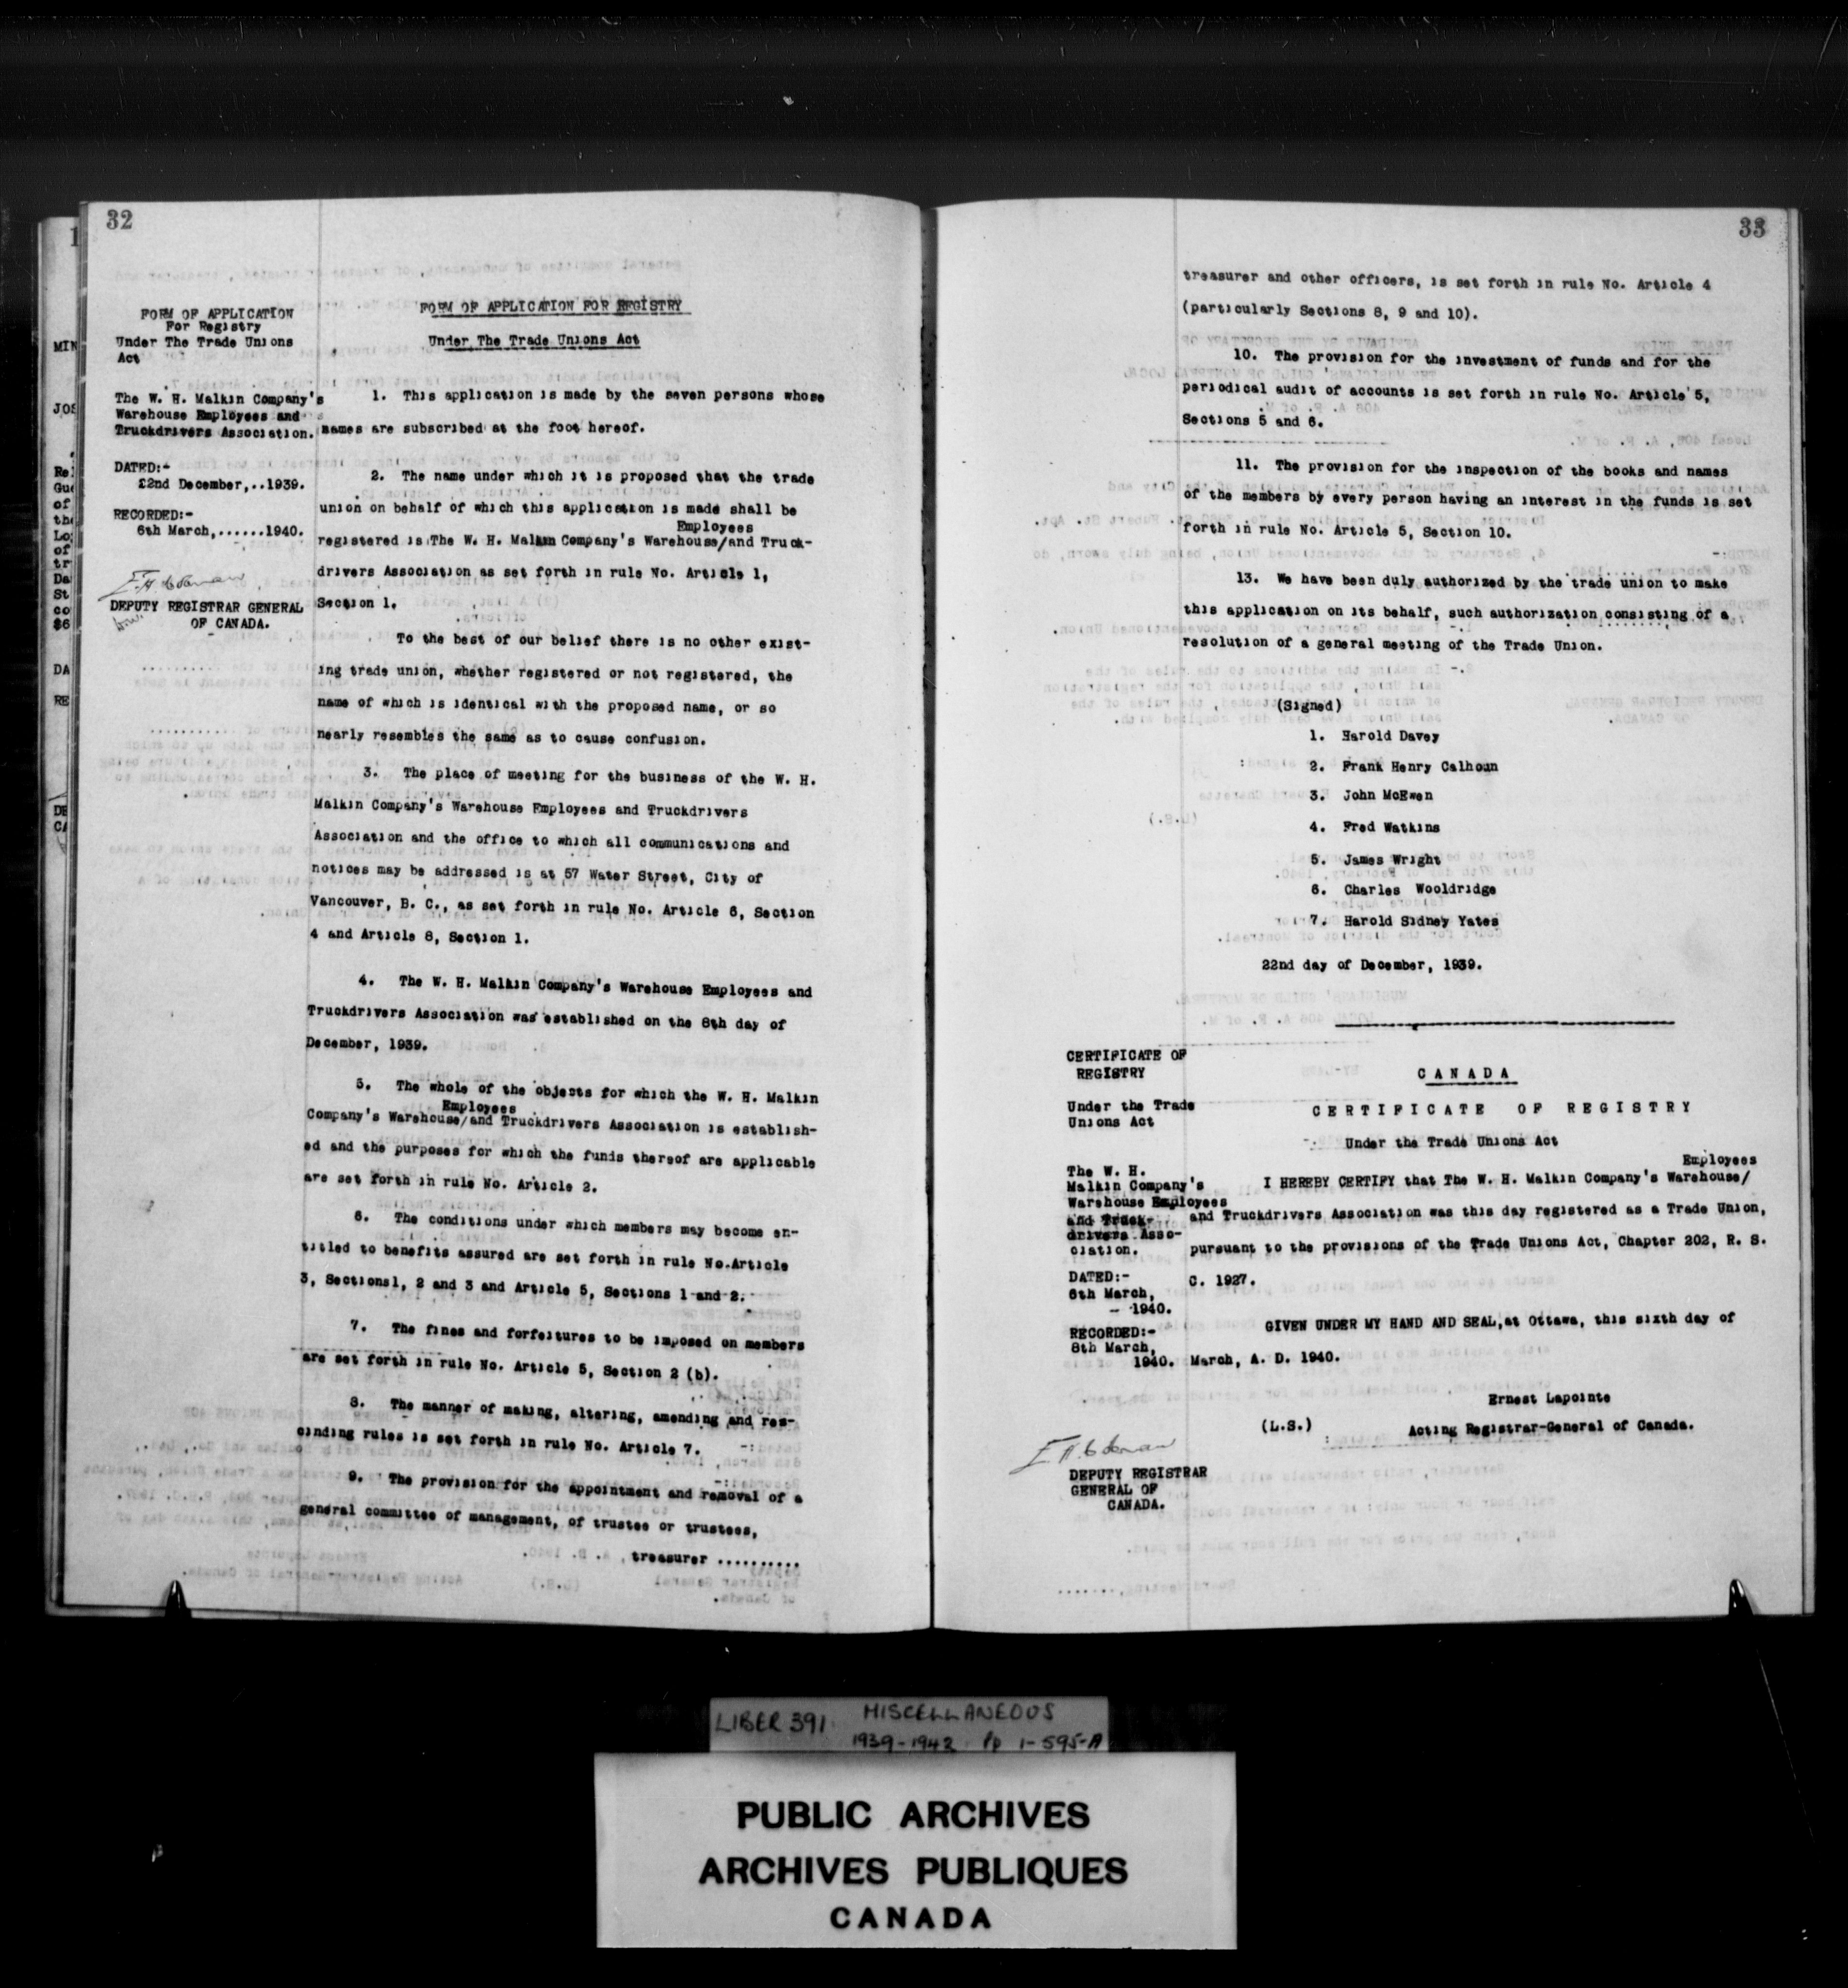 32
FORM OF APPLICATION
For Registry
Under The Trade Unions
Act
The W. H. Malkin Company's
Warehouse Employees and
Truckdrivers Association.
DATED:-
22nd December,..1939.
RECORDED:-
6th March,......1940.
DEPUTY REGISTRAR GENERAL
OF CANADA.
FORM OF APPLICATION FOR REGISTRY
Under The Trade Unions Act
1. This application is made by the seven persons whose
names are subscribed at the foot hereof.
2. The name under which it is proposed that the trade
union on behalf of which this application is made shall be
Employees
registered is The W. H. Malkin Company's Warehouse/and Truck-
drivers Association as set forth in rule No. Article 1,
Section 1.
To the best of our belief there is no other exist-
ing trade union, whether registered or not registered, the
name of which is identical with the proposed name, or so
nearly resembles the same as to cause confusion.
3. The place of meeting for the business of the W. H.
Malkin Company's Warehouse Employees and Truckdrivers
Association and the office to which all communications and
notices may be addressed is at 57 Water Street, City of
Vancouver, B. C., as set forth in rule No. Article 6, Section
4 and Article 8, Section 1.
4. The W. H. Malkin Company's Warehouse Employees and
Truckdrivers Association was established on the 8th day of
December, 1939.
5. The whole of the objects for which the W. H. Malkin
Employees
Company's Warehouse/and Truckdrivers Association is establish-
ed and the purposes for which the funds thereof are applicable
are set forth in rule No. Article 2.
6. The conditions under which members may become en-
titled to benefits assured are set forth in rule No.Article
3, Sections1, 2 and 3 and Article 5, Sections 1 and 2.
7. The fines and forfeitures to be imposed on members
are set forth in rule No. Article 5, Section 2 (b).
8. The manner of making, altering, amending and res-
cinding rules is set forth in rule No. Article 7.
9. The provision for the appointment and removal of a
general committee of management, of trustee or trustees,
treasurer ..........
33
treasurer and other officers, is set forth in rule No. Article 4
(particularly Sections 8, 9 and 10).
10. The provision for the investment of funds and for the
periodical audit of accounts is set forth in rule No. Article 5,
Sections 5 and 6.
11. The provision for the inspection of the books and names
of the members by every person having an interest in the funds is set
forth in rule No. Article 5, Section 10.
13. We have been duly authorized by the trade union to make
this application on its behalf, such authorization consisting of a
resolution of a general meeting of the Trade Union.
(Signed)
1. Harold Davey
2. Frank Henry Calhoun
3. John McEwen
4. Fred Watkins
5. James Wright
6. Charles Wooldridge
7. Harold Sidney Yates
22nd day of December, 1939.
CERTIFICATE OF
REGISTRY
Under the Trade
Unions Act
The W. H.
Malkin Company's
Warehouse Employees
and Truck-
drivers Asso-
ciation.
DATED:-
6th March,
- 1940.
RECORDED:-
8th March,
1940.
DEPUTY REGISTRAR
GENERAL OF
CANADA.
CANADA
CERTIFICATE OF REGISTRY
Under the Trade Unions Act
Employees
I HEREBY CERTIFY that The W. H. Malkin Company's Warehouse/
and Truckdrivers Association was this day registered as a Trade Union,
pursuant to the provisions of the Trade Unions Act, Chapter 202, R. S.
C. 1927.
GIVEN UNDER MY HAND AND SEAL,at Ottawa, this sixth day of
March, A. D. 1940.
Ernest Lapointe
(L.S.) Acting Registrar-General of Canada.
LIBER 391 MISCELLANEOUS
1939-1942 Pp 1-595-A
PUBLIC ARCHIVES
ARCHIVES PUBLIQUES
CANADA